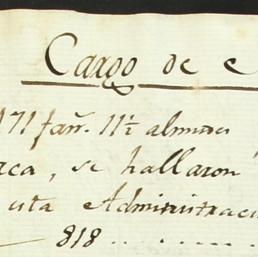 Cargo de e
171 fan.s 11½ almudes
aca, se hallaron
esta Administraci
818